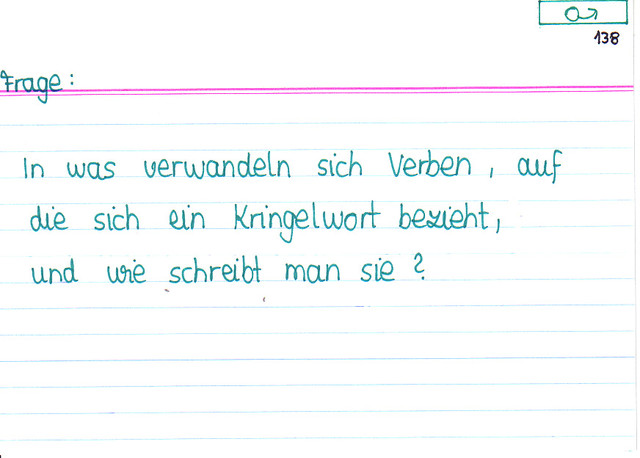 138
Frage:
In was verwandeln sich Verben, auf
die sich ein Kringelwort bezieht,
und wie schreibt man sie?